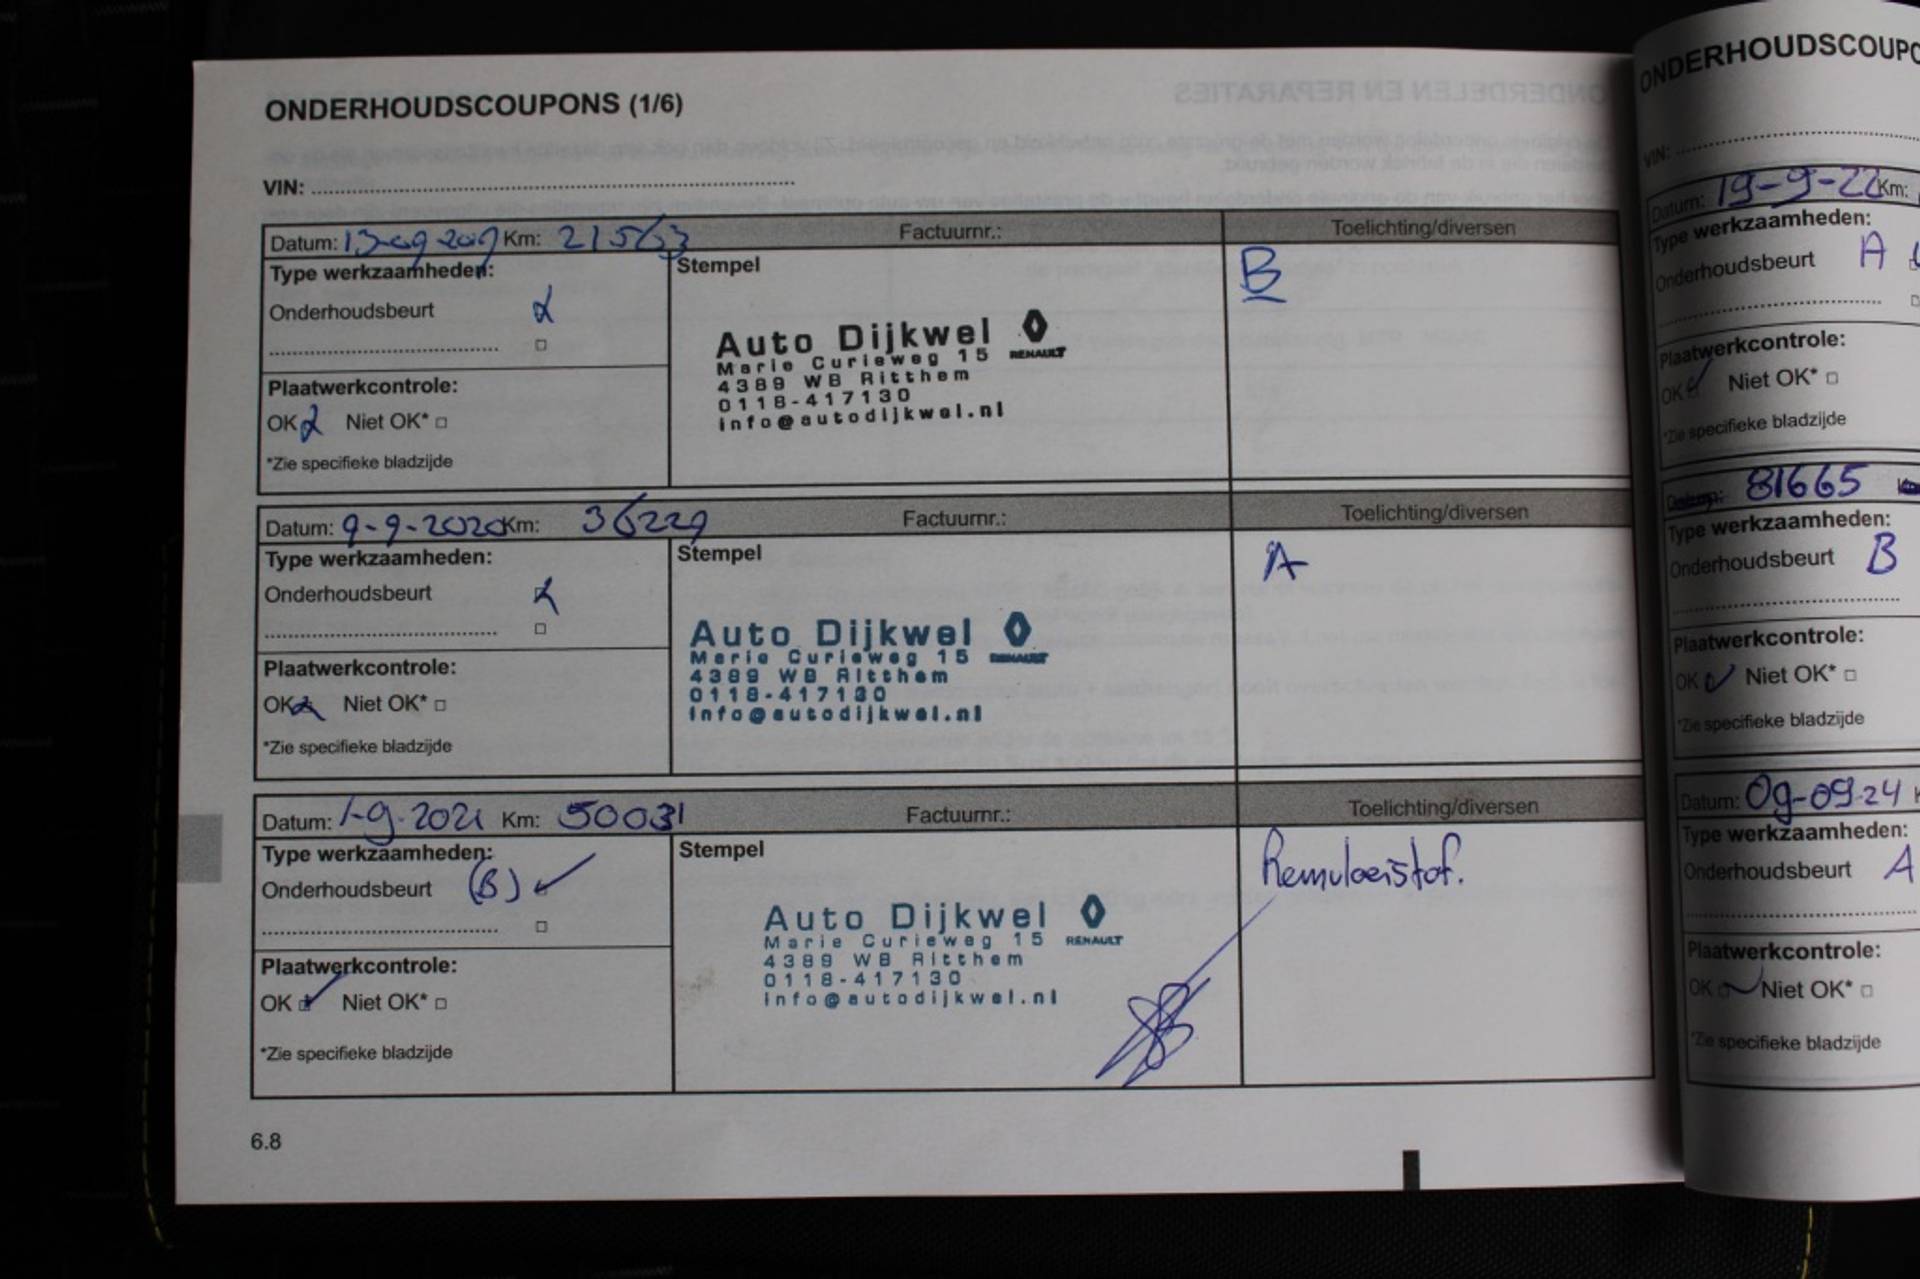 ONDERHOUDSCOUPONS (1/6)
VIN:
Datum: 13-09-2019 Km: 21563 Factuurnr.: Toelichting/diversen
Type werkzaamheden: Stempel B
Onderhoudsbeurt
Auto Dijkwel
Marie Curieweg 15 RENAULT
4389 WB Ritthem
0118-417130
info@autodijkwel.nl
Plaatwerkcontrole:
OK Niet OK*
*Zie specifieke bladzijde
Datum: 9-9-2020 Km: 36229 Factuurnr.: Toelichting/diversen
Type werkzaamheden: Stempel A
Onderhoudsbeurt
Auto Dijkwel
Marie Curieweg 15 RENAULT
4389 WB Ritthem
0118-417130
info@autodijkwel.nl
Plaatwerkcontrole:
OK Niet OK*
*Zie specifieke bladzijde
Datum: 1-9-2021 Km: 50031 Factuurnr.: Toelichting/diversen
Type werkzaamheden: Stempel
Onderhoudsbeurt (B)
Remvloeistof.
Auto Dijkwel
Marie Curieweg 15 RENAULT
4389 WB Ritthem
0118-417130
info@autodijkwel.nl
Plaatwerkcontrole:
OK Niet OK*
*Zie specifieke bladzijde
6.8
ONDERHOUDSCOUPO
VIN:
Datum: 19-9-22 Km:
Type werkzaamheden:
Onderhoudsbeurt A
Plaatwerkcontrole:
OK Niet OK*
*Zie specifieke bladzijde
81665
Type werkzaamheden:
Onderhoudsbeurt B
Plaatwerkcontrole:
OK Niet OK*
*Zie specifieke bladzijde
Datum: 09-09-24
Type werkzaamheden:
Onderhoudsbeurt A
Plaatwerkcontrole:
OK Niet OK*
*Zie specifieke bladzijde